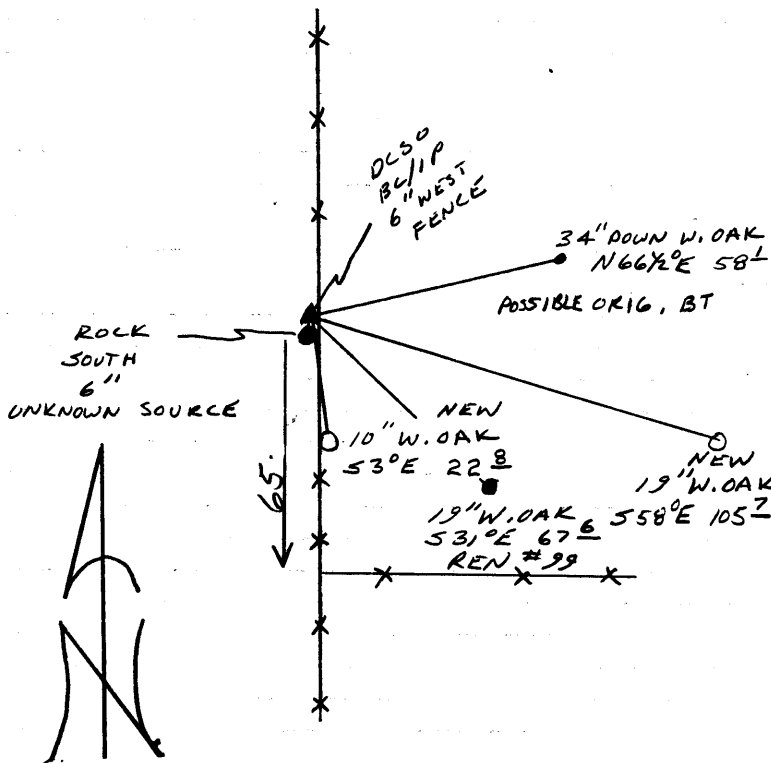 DCSO
BC/IP
6" WEST
FENCE
34" DOWN W. OAK
N66½°E 58 1
POSSIBLE ORIG. BT
ROCK
SOUTH
6"
UNKNOWN SOURCE
NEW
10" W. OAK
S3°E 22 8
65.
NEW
19" W. OAK
S58°E 105 7
19" W. OAK
S31°E 67 6
REN #99
N